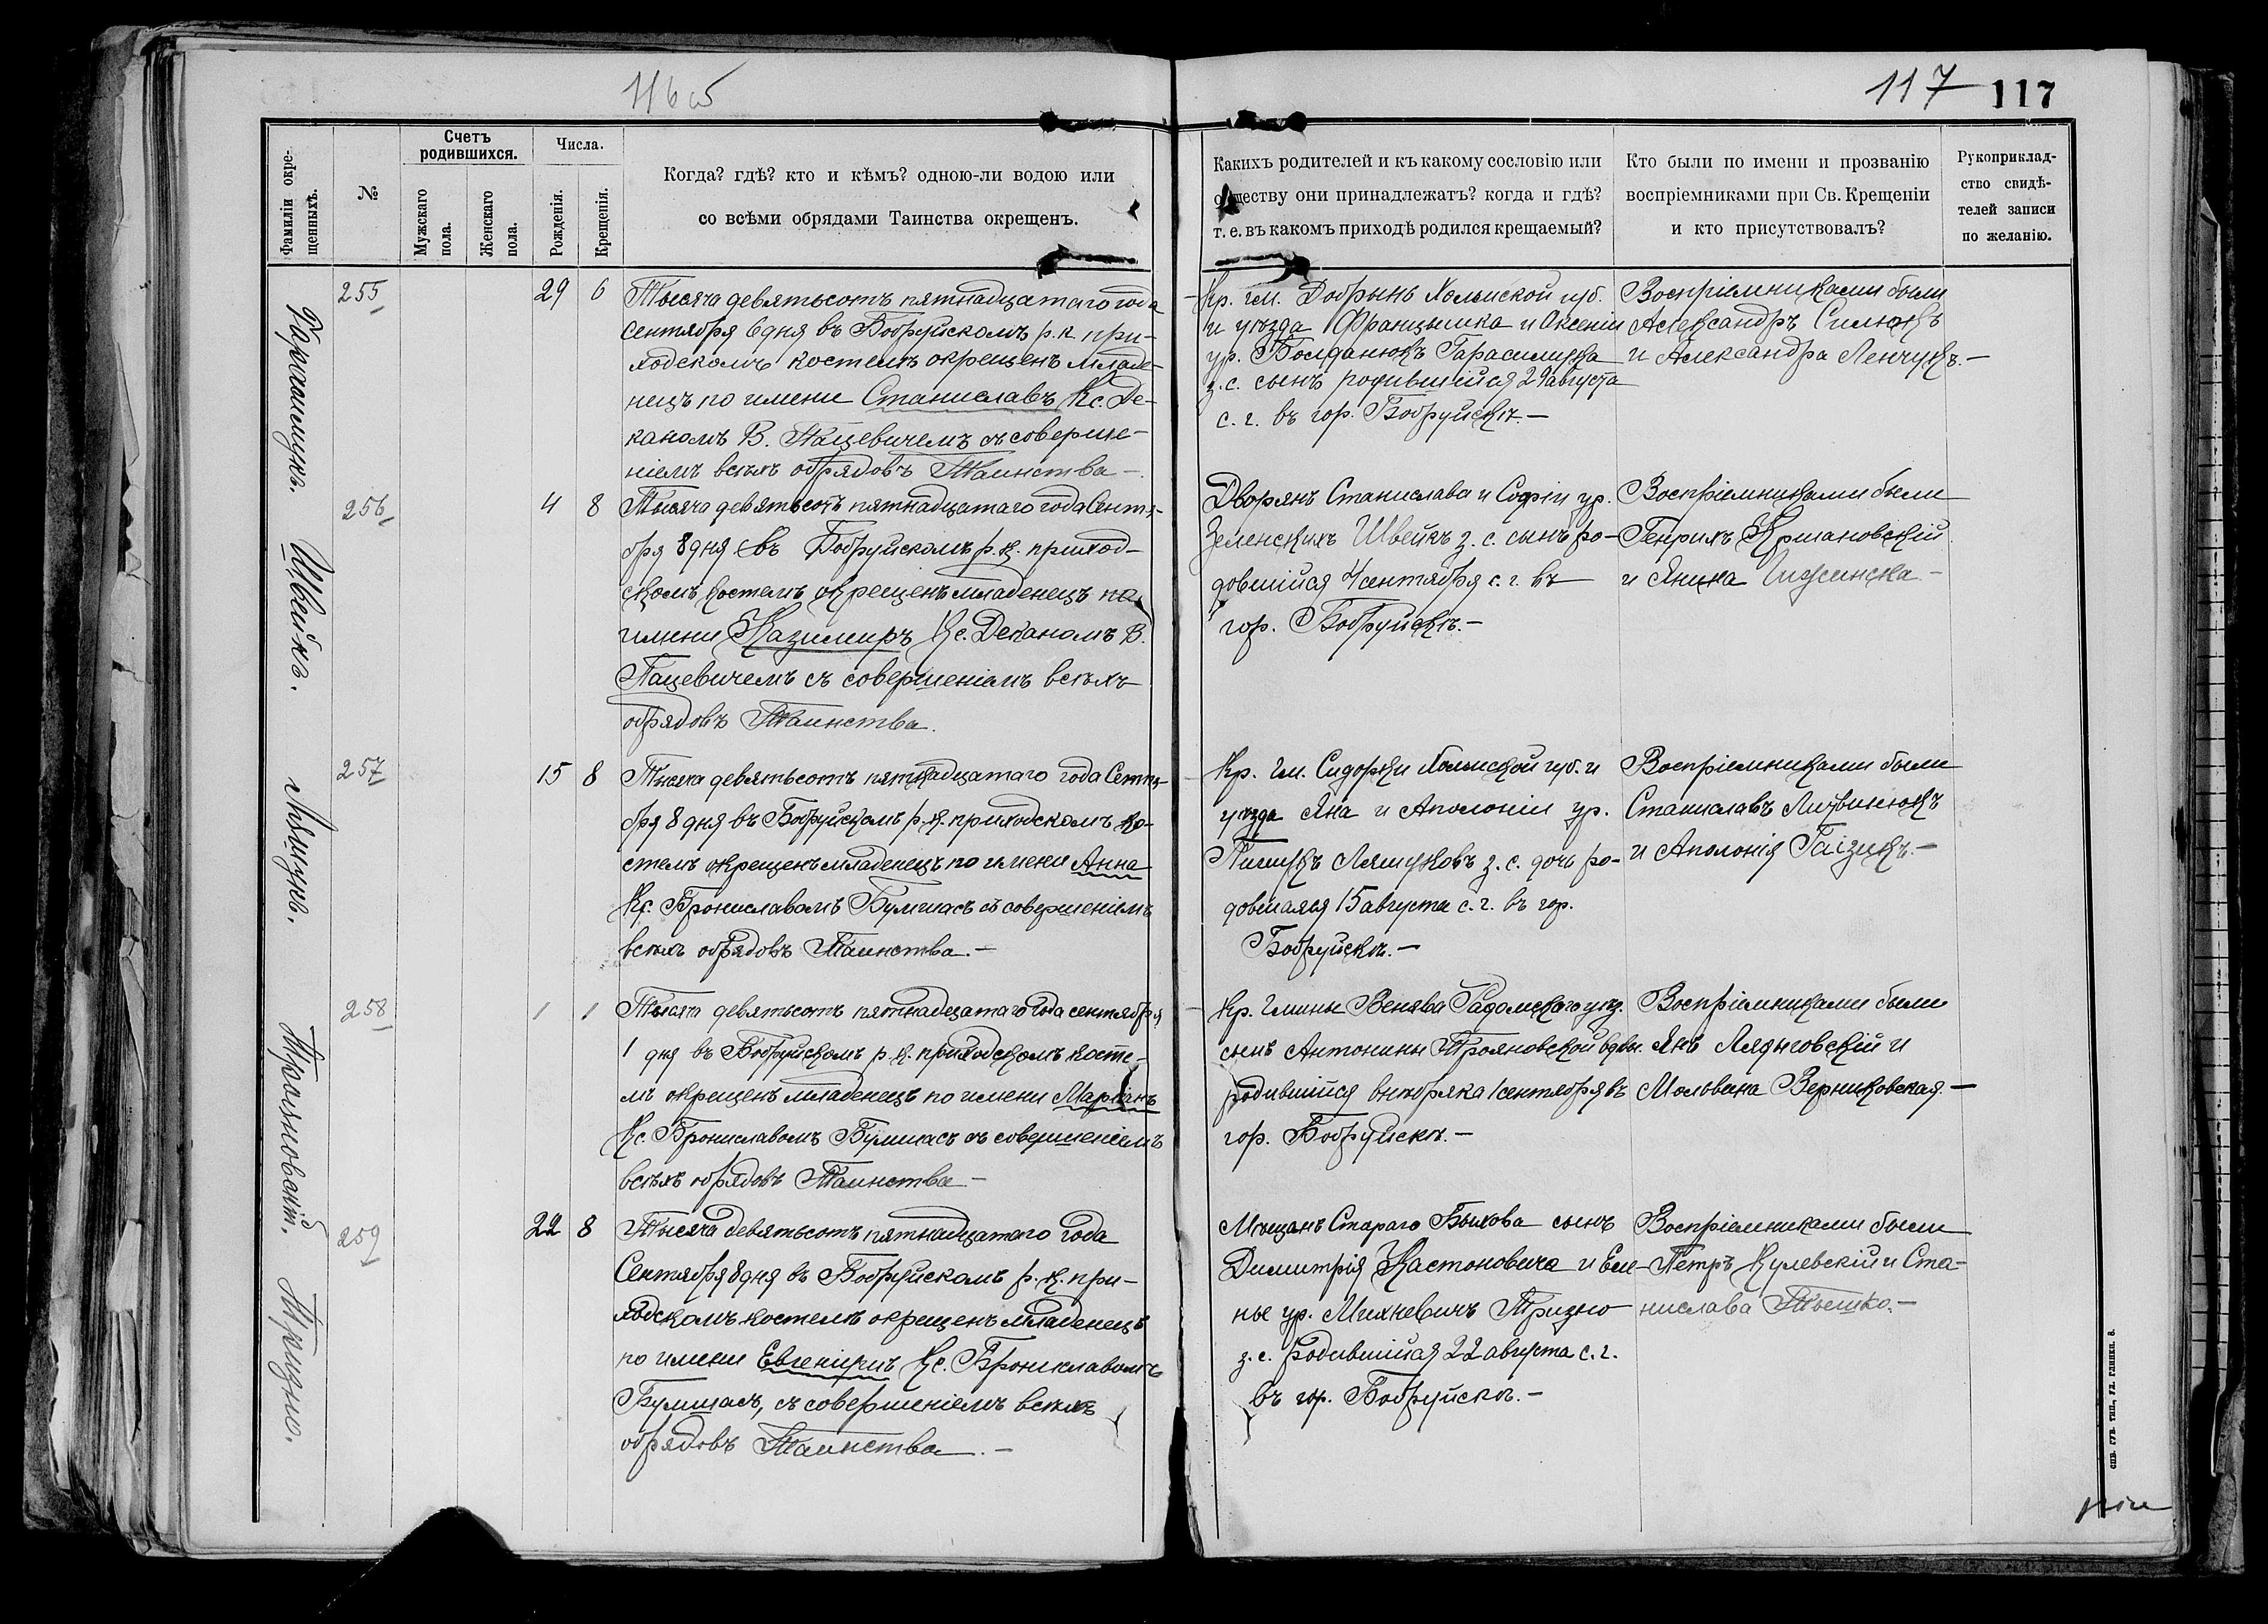 116 об
117 117
Фамиліи окрещенныхъ.
№
Счетъ родившихся.
Мужскаго пола.
Женскаго пола.
Числа.
Рожденія.
Крещенія.
Когда? гдѣ? кто и кѣмъ? одною-ли водою или
со всѣми обрядами Таинства окрещенъ.
Какихъ родителей и къ какому сословію или
обществу они принадлежатъ? когда и гдѣ?
т. е. въ какомъ приходѣ родился крещаемый?
Кто были по имени и прозванію
воспріемниками при Св. Крещеніи
и кто присутствовалъ?
Рукоприклад-
ство свидѣ-
телей записи
по желанію.
Гарасимукъ.
255
29 6
Тысяча девятьсотъ пятнадцатаго года
сентября 6 дня въ Бобруйскомъ р. к. при-
ходскомъ костелѣ окрещенъ младе-
нецъ по имени Станиславъ Кс. Де-
каномъ В. Пацевичемъ съ соверше-
ніемъ всѣхъ обрядовъ Таинства —
Кр. гм. Добрынь Холмской губ.
и уѣзда Францишка и Аксеніи
ур. Богданюкъ Гарасимука
з. с. сынъ родившійся 29 августа
с. г. въ гор. Бобруйскѣ. —
Воспріемниками были
Александръ Силюкъ
и Александра Ленчукъ. —
Швейкъ.
256
4 8
Тысяча девятьсотъ пятнадцатаго года Сентя-
бря 8 дня въ Бобруйскомъ р. к. приход-
скомъ костелѣ окрещенъ младенецъ по
имени Казимиръ Кс. Деканомъ В.
Пацевичемъ съ совершеніемъ всѣхъ
обрядовъ Таинства.
Дворянъ Станислава и Софіи ур.
Зеленскихъ Швейкъ з. с. сынъ ро-
дившійся 4 сентября с. г. въ
гор. Бобруйскѣ. —
Воспріемниками были
Генрихъ Крмановскій
и Янина
Ляшукъ.
257
15 8
Тысяча девятьсотъ пятнадцатаго года Сентя-
бря 8 дня въ Бобруйскомъ р. к. приходскомъ ко-
стелѣ окрещенъ младенецъ по имени Анна
Кс. Брониславомъ Бумшасъ съ совершеніемъ
всѣхъ обрядовъ Таинства. —
Кр. гм. Сидорки Холмской губ. и
уѣзда Яна и Аполоніи ур.
Пишукъ Ляшуковъ з. с. дочь ро-
дившаяся 15 августа с. г. въ гор.
Бобруйскѣ. —
Воспріемниками были
Станиславъ Литвинюкъ
и Аполонія
Трояновскій.
258
1 1
Тысяча девятьсотъ пятнадцатаго года сентября
1 дня въ Бобруйскомъ р. к. приходскомъ косте-
лѣ окрещенъ младенецъ по имени Марьянъ
Кс. Брониславомъ Бумшасъ съ совершеніемъ
всѣхъ обрядовъ Таинства —
Кр. Гмины Венява Радомскаго уѣз.
сынъ Антонины Трояновской вдовы.
родившійся внебрачно 1 сентября въ
гор. Бобруйскѣ. —
Воспріемниками были
Янъ Лядыговскій и
Верниковская. —
Тризно.
259
22 8
Тысяча девятьсотъ пятнадцатаго года
Сентября 8 дня въ Бобруйскомъ р. к. при-
ходскомъ костелѣ окрещенъ младенецъ
по имени Кс. Брониславомъ
Бумшасъ, съ совершеніемъ всѣхъ
обрядовъ Таинства. —
Мѣщанъ Стараго Быхова сынъ
Димитрія Кастоновича и Еле-
ны ур. Михневичъ Тризно
з. с. родившійся 22 августа с. г.
въ гор. Бобруйскѣ. —
Воспріемниками были
Петръ Кулевскій и Ста-
нислава —
спб. губ. тип., ул. глинки. 8.